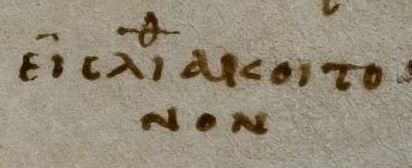 εἰςλιᶿ ακοιτο
νον